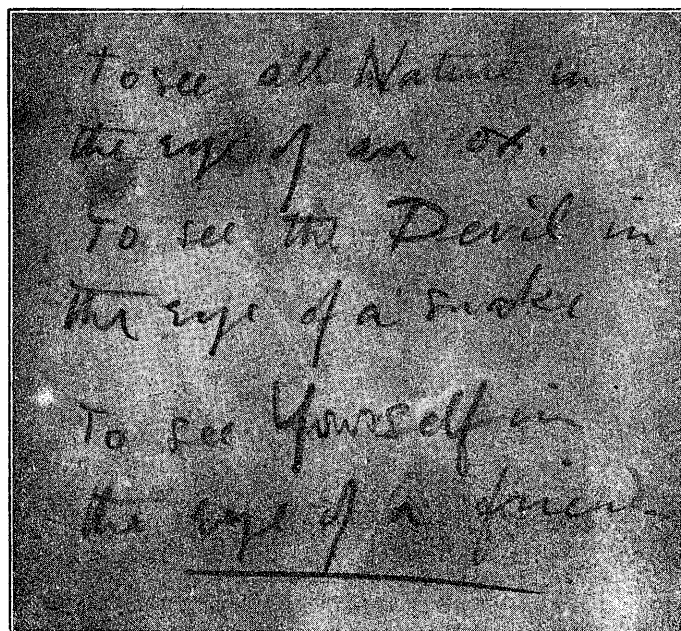 To see all Nature in
the eye of an ox.
To see the Devil in
the eye of a snake
To see Yourself in
the eye of a friend